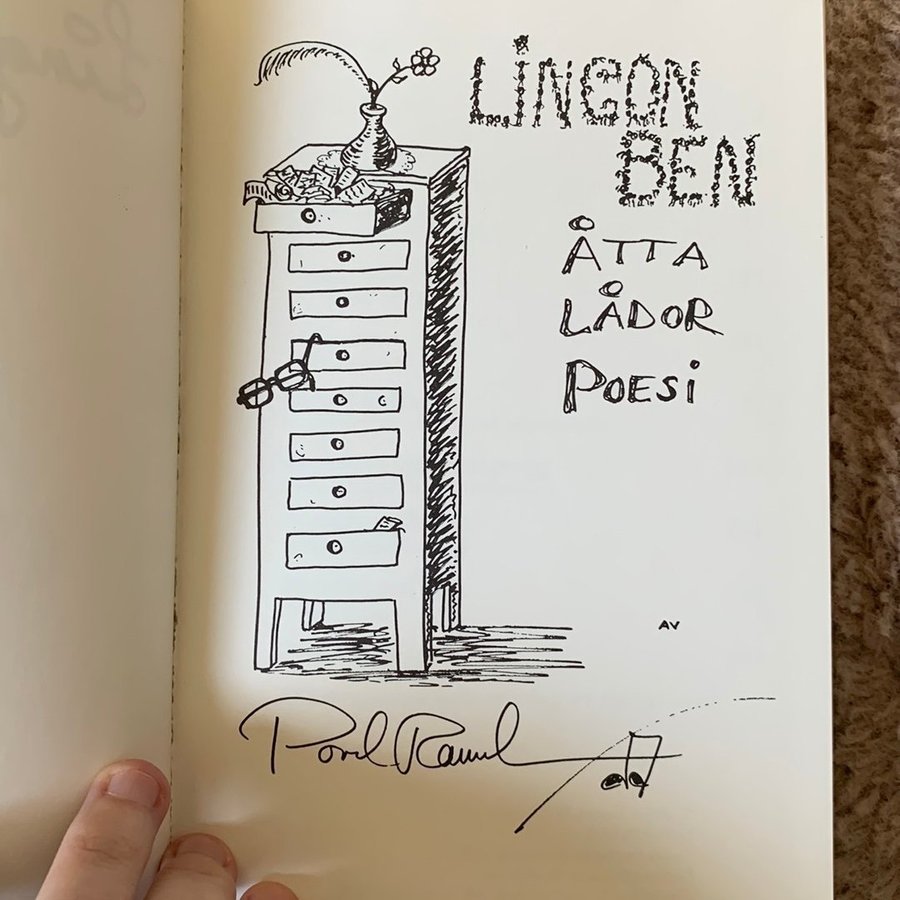 LiNGON
BEN
ÅTTA
LÅDOR
POESi
AV
Povel Ramel